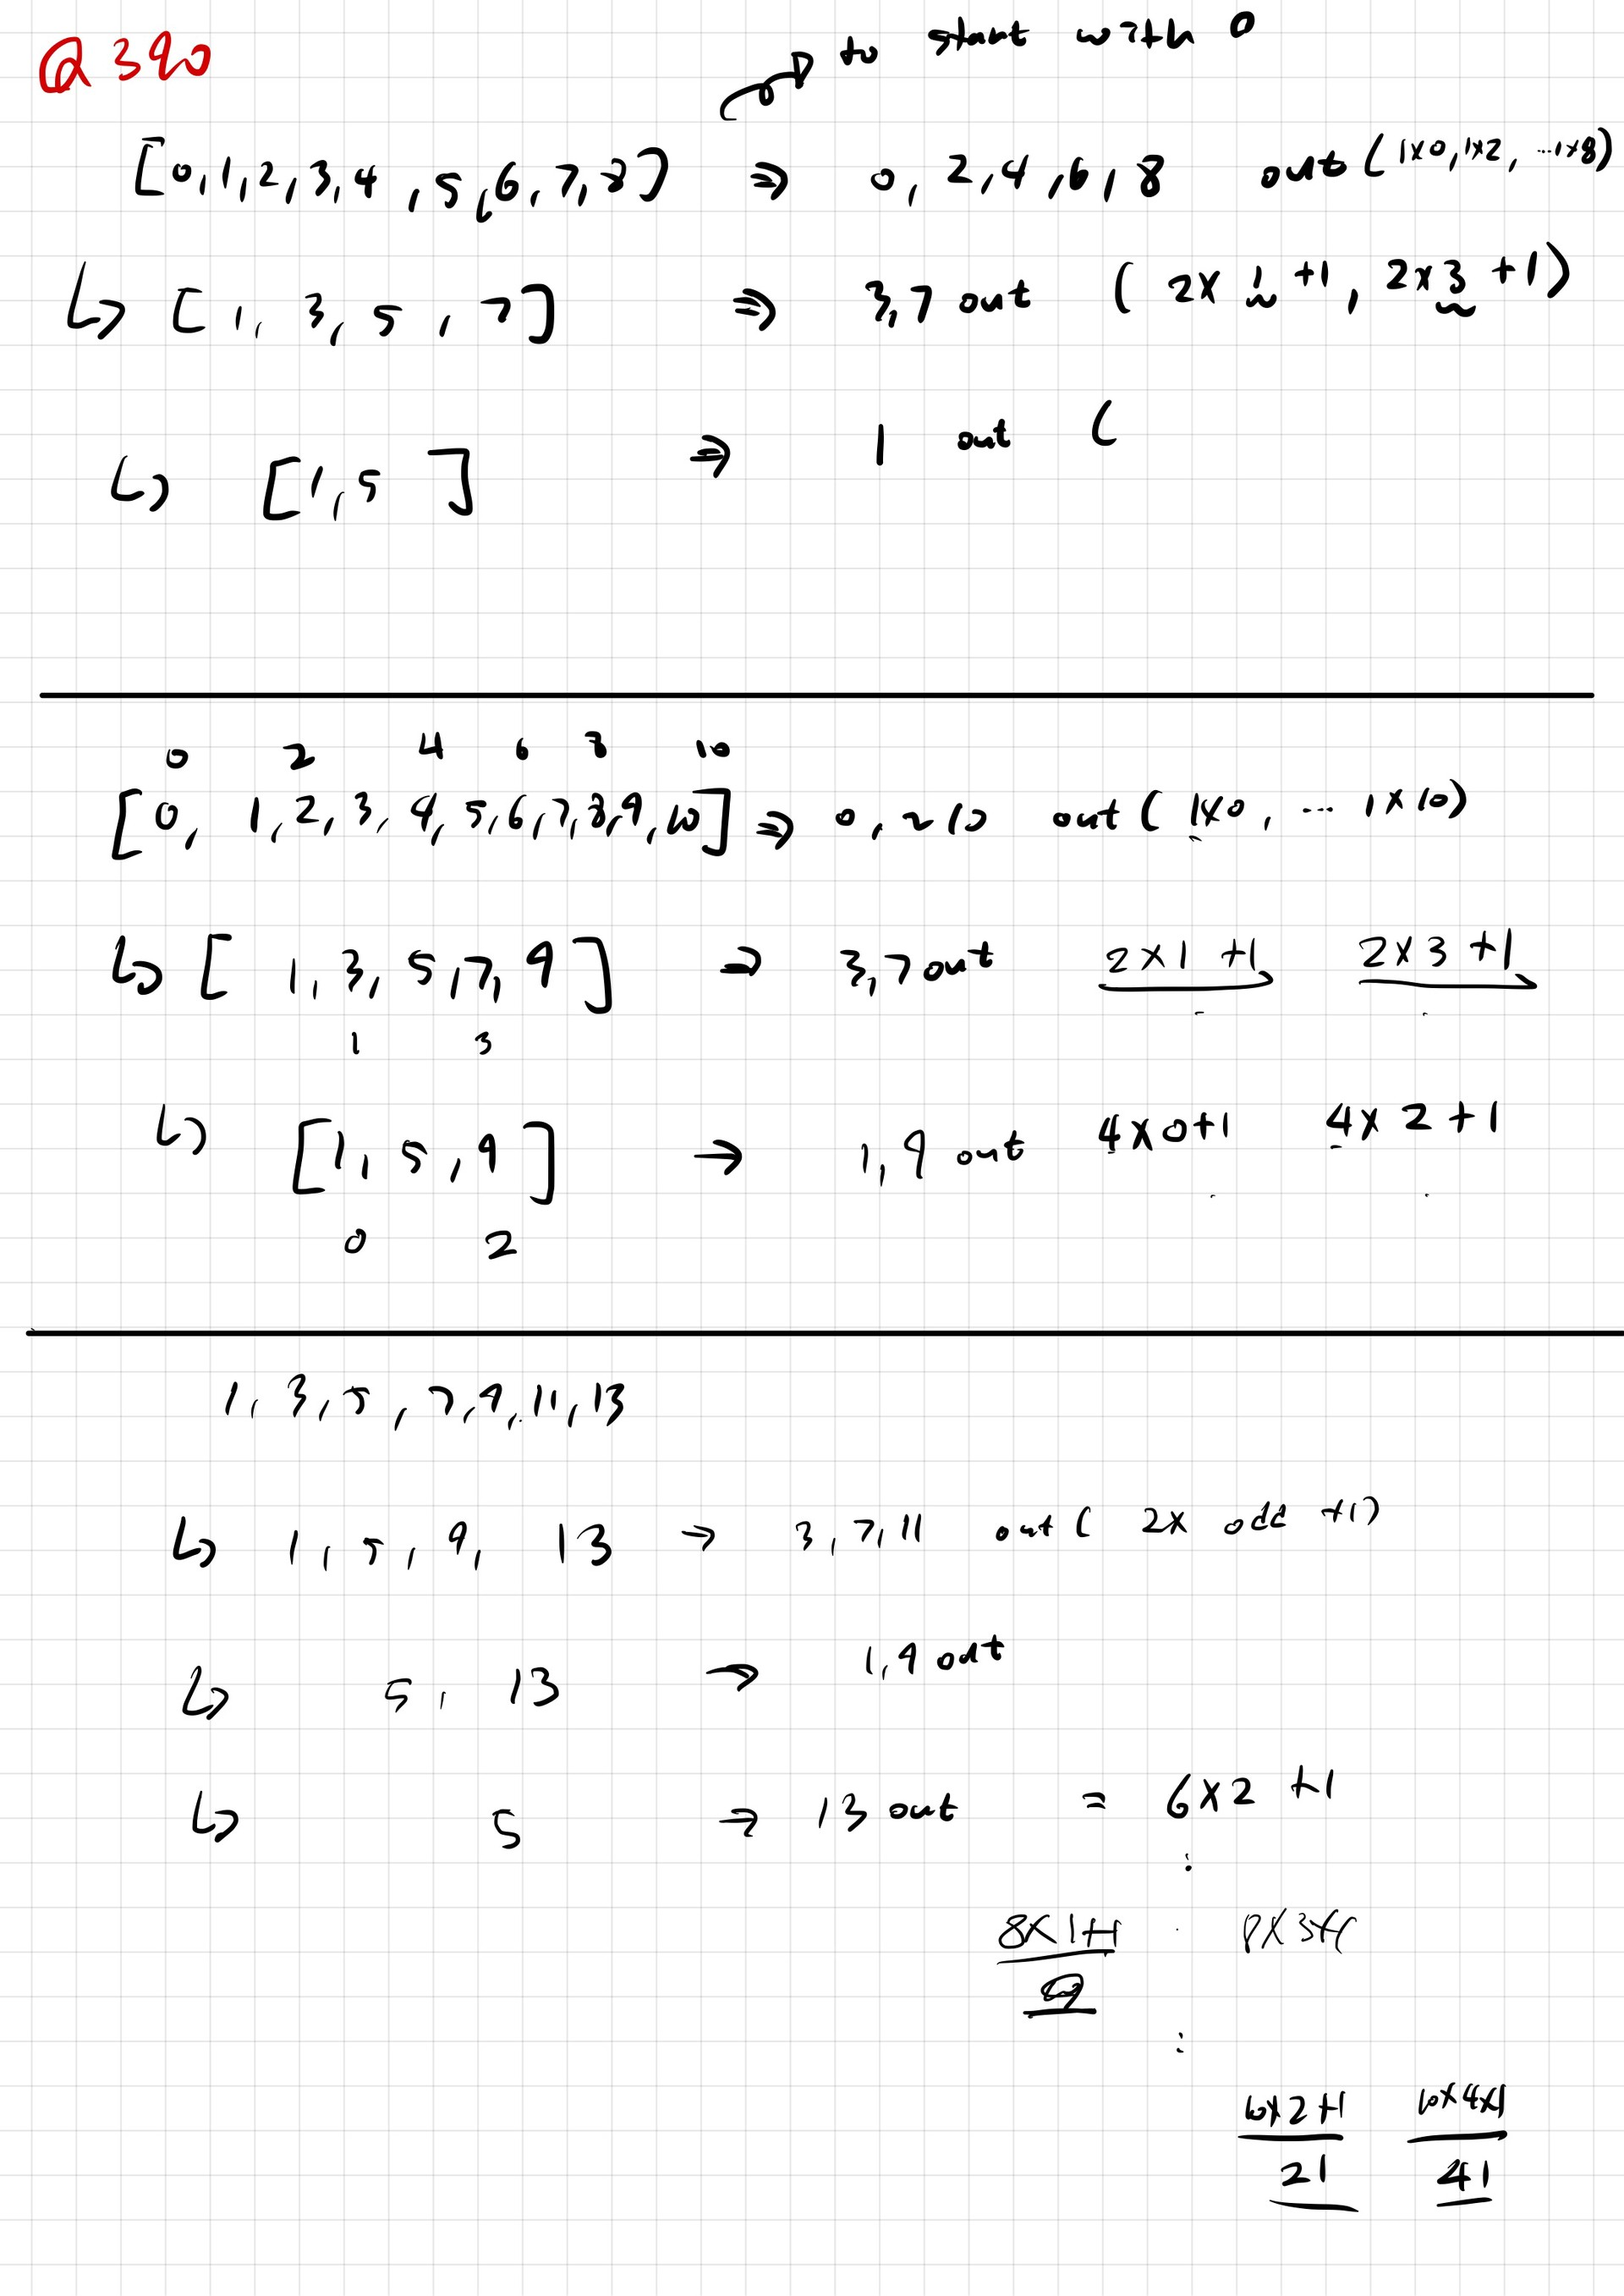 Q 390
to start with 0
[0,1,2,3,4,5,6,7,8] ⇒ 0,2,4,6,8 out (1×0,1×2, ...1×8)
↳ [1,3,5,7] ⇒ 3,7 out (2×1+1, 2×3+1)
↳ [1,5] ⇒ 1 out (
0 2 4 6 8 10
[0,1,2,3,4,5,6,7,8,9,10] ⇒ 0,~10 out (1×0, ... 1×10)
↳ [1,3,5,7,9] → 3,7 out 2×1+1 2×3+1
1 3
↳ [1,5,9] → 1,9 out 4×0+1 4×2+1
0 2
1,3,5,7,9,11,13
↳ 1,5,9,13 → 3,7,11 out (2× odd +1)
↳ 5,13 → 1,9 out
↳ 5 → 13 out = 6×2+1
:
8×1+1 8×3+1
9
:
10×2+1 10×4×1
21 41